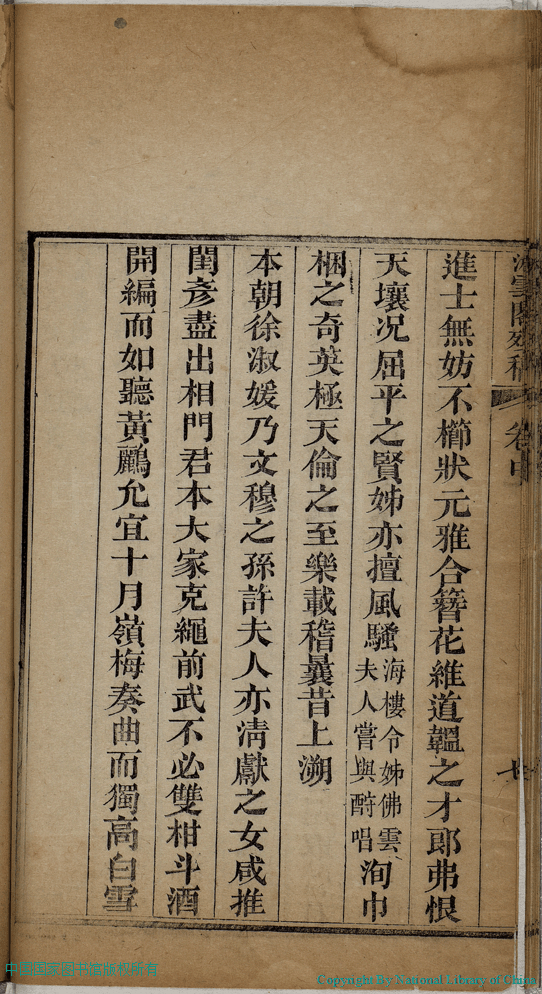 進士無妨不櫛狀元雅合簪花維道韞之才郎弗恨
天壤况屈平之賢姊亦擅風騷海樓令姊佛雲夫人嘗與酧唱洵巾
梱之奇英極天倫之至樂載稽曩昔上溯
本朝徐淑媛乃文穆之孫許夫人亦清獻之女咸推
閨彥盡出相門君本大家克繩前武不必雙柑斗酒
開編而如聽黃鸝允宜十月嶺梅奏曲而獨高白雪
卷中
中国国家图书馆版权所有
Copyright By National Library of China